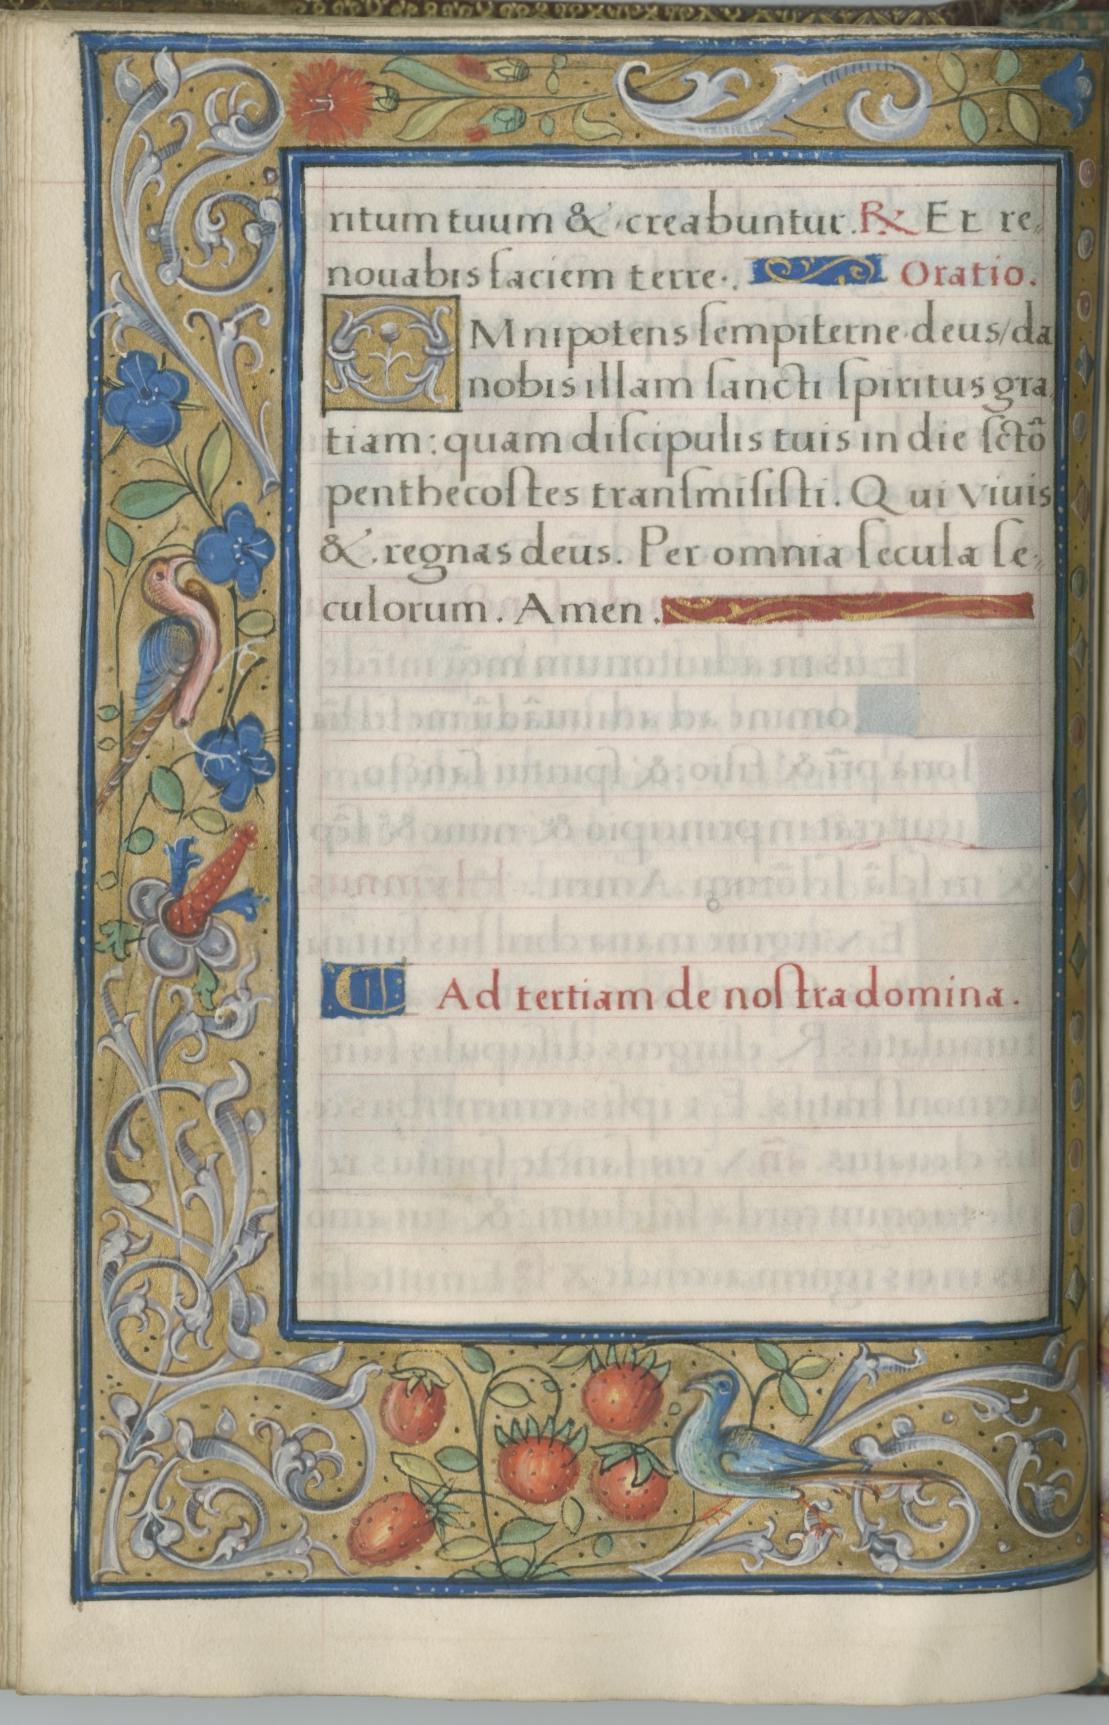 ritum tuum &. creabuntur. ℟ Et re,,
nouabis faciem terre. Oratio.
OMnipotens sempiterne deus/da
nobis illam sancti spiritus gra,
tiam: quam discipulis tuis in die sctō
penthecostes transmisisti. Qui viuis
&. regnas deus. Per omnia secula se,,
culorum. Amen.
Ad tertiam de nostra domina.